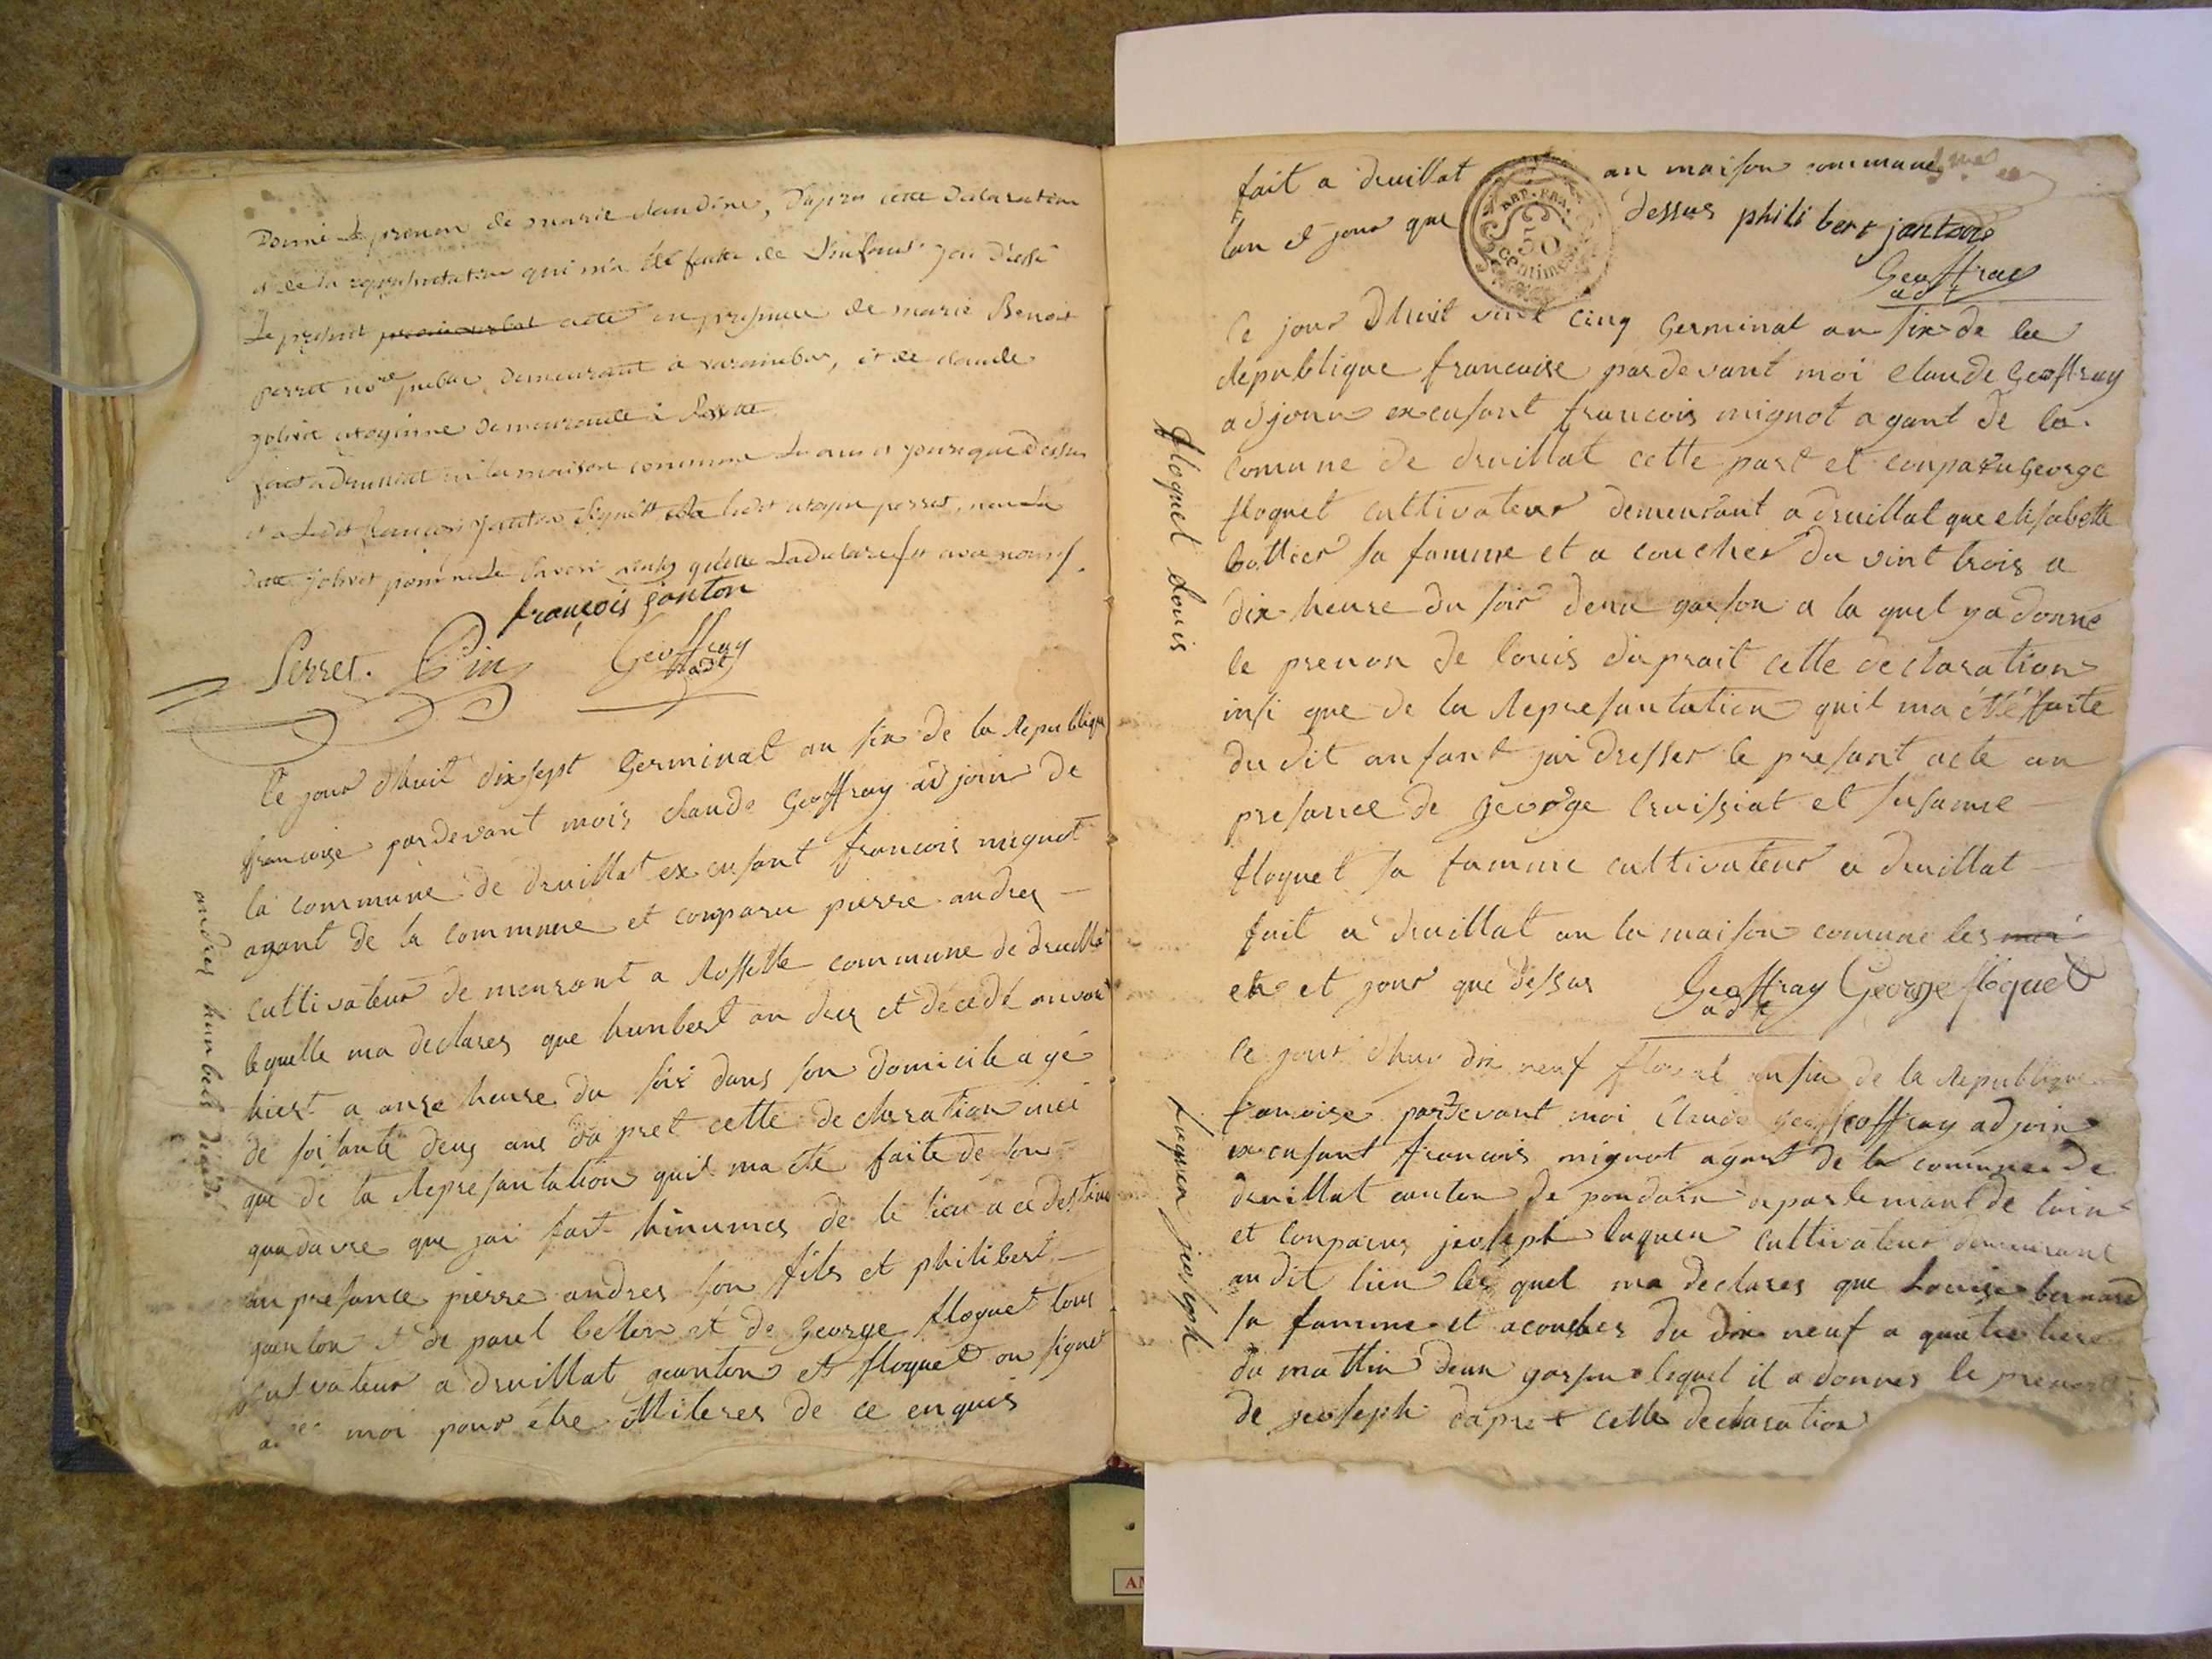 Donné Le prenon de marie claudine, Dapres cette Declaration
et de la representation qui m'a été faite de L'enfant jai Dressé
Le present acte en presence de marie Benoit
perret nore public demeurant à varambon, et de claude
jolivet citoyenne demeurante à Rossette
fait a Druillat en la maison commune Les an et jour que Dessus
et a Ledit françois janton signé et Ledit citoyen perret, non La
ditte jolivet pour ne le savoir ainsy qu'elle La declaré
françois janton
Perret. Pin Geoffray
adjt
Ce jour dhuit dix sept Germinal an six de la Republique
francoise pardevant mois claude Geoffray adjoin de
la commune de druillat ex cusant francois mignot
agant de la commune et conparu pierre andrey
cultivateur demeurant a Rossette commune de druillat
lequelle ma declares que humbert an drey et décedé
hiert a onze heure du soir dans son domicile agé
de soisante deus ans da pret cette declaration insi
que de la Represantation quil ma eté faite de son
quadavre que jai fait hinumes de le lieu a ce destiné
an presance pierre andrey son fils et philibert
ganton et de paul bellen et de George floquet tous
cultivateur a druillat ganton et floquet on signet
avec moi pour être illiteres de ce enquis
andrey humbert décédé
fait a druillat an maison commune
lan et jour que dessus phili bert jantont
REP. FRA.
50
centimes
Geoffray
adt
Ce jour Dhuit vint cinq Germinal an six de la
Republique francoise pardevant moi Claude Geoffray
adjoin excusant francois mignot agant de la
comune de druillat cette part et conparu George
floquet cultivateur demeurant a druillat que elisabette
bottier sa famme et a coucher du vint trois a
dix heure du soir denu garson a la quel ya donné
le prenon de louis daprait cette declaration
insi que de la Represantation quil ma été faite
du dit anfant jai dresser le presant acte an
presance de George Cruissiat et susanne
floquet sa famme cultivateur a druillat
fait a druillat an la maison comune les moi
et jour que dessus Geoffray George floquet
adt
floquet Louis
Ce jour dhuy dix neuf floreal an six de la Republique
francoise pardevant moi Claude Geoffray adjoin
excusant francois mignot agant de la commune de
druillat canton de pondain departemant de lain
et conparus joseph luquen cultivateur demeurant
au dit lieu les quel ma declares que Louise bernard
sa famme et acoucher du dix neuf a quatre heure
du mattin deun garson lequel il a donner le prenon
de joseph dapret cette declaration
Luquen joseph